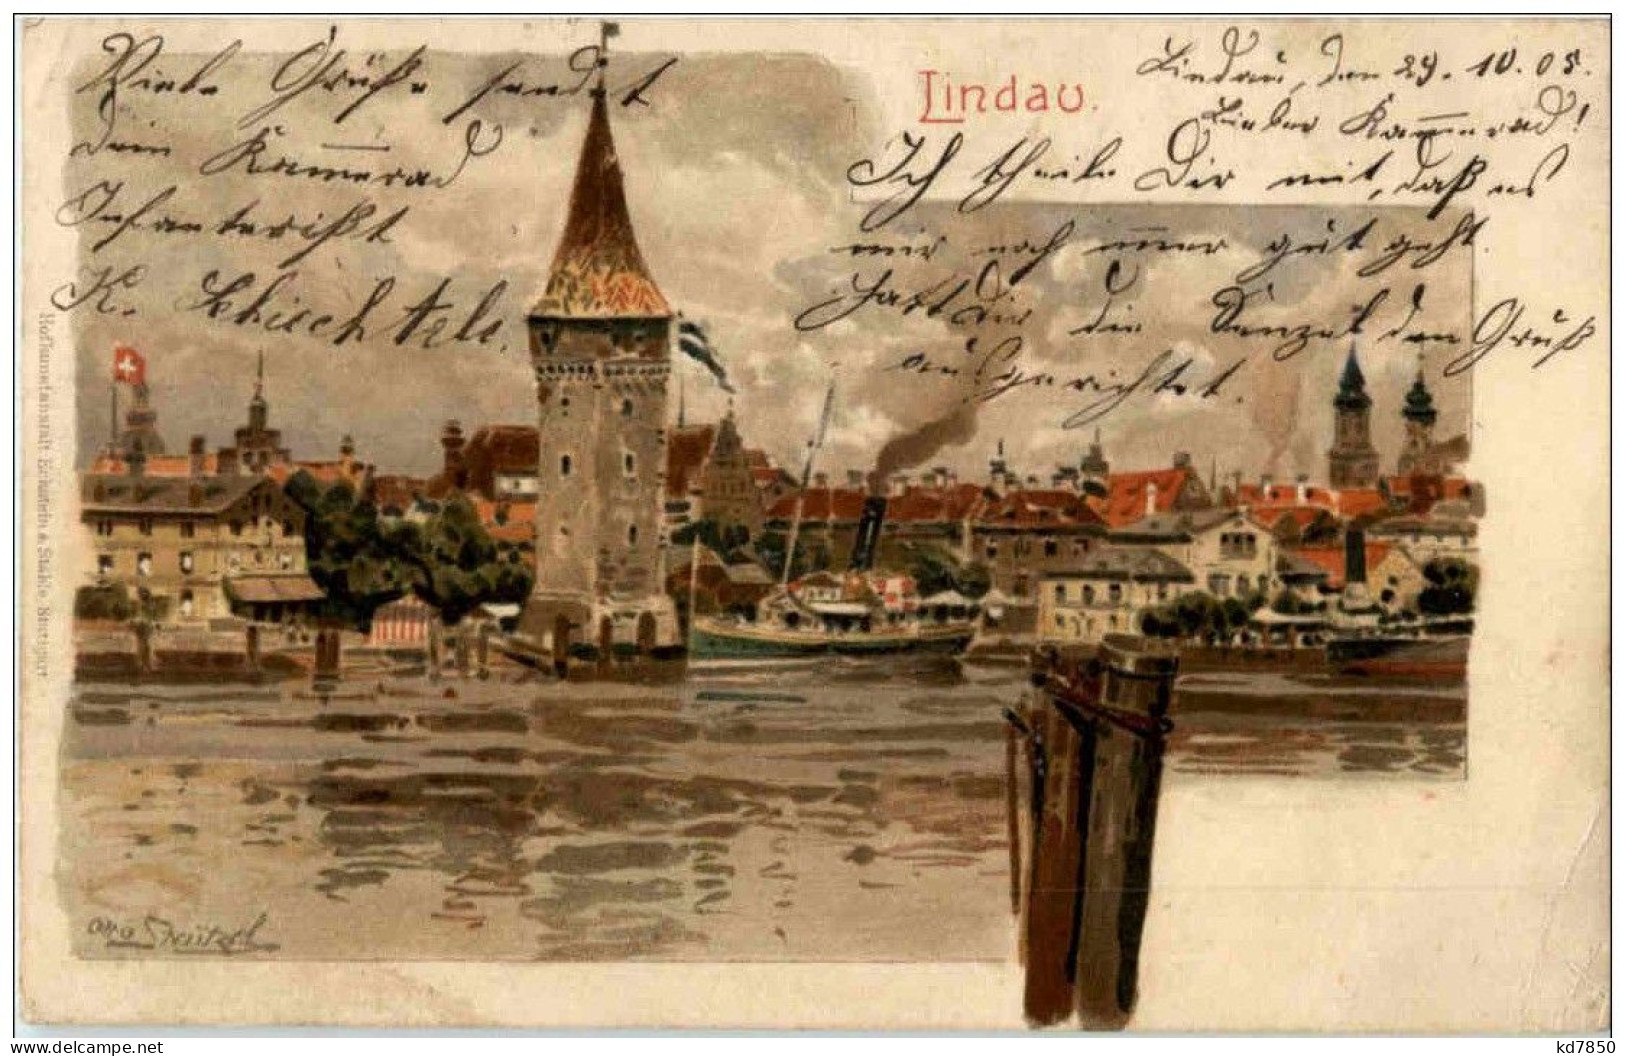 Lindau.
Lindau, den 29. 10. 05.
Lieber Kamerad!
Ich theile Dir mit, daß es
mir noch immer gut geht.
Hast Dir die den Gruß
ausgerichtet.
Viele Grüße sendet
dein Kamerad
Infanterißt
K.
Hofkunstanstalt Eckstein & Stähle Stuttgart
kd7850
www.delcampe.net